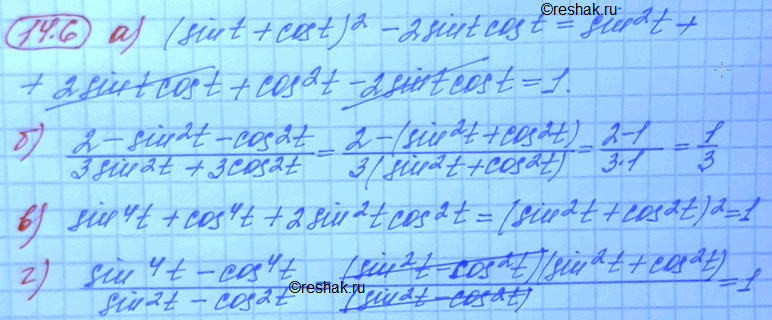 ©reshak.ru
14.6 а) (sint + cost)² - 2sint cost = sin²t +
+ 2sint cost + cos²t - 2sint cost = 1.
б) (2 - sin²t - cos²t)/(3sin²t + 3cos²t) = (2 - (sin²t + cos²t))/(3(sin²t + cos²t)) = (2-1)/(3·1) = 1/3
в) sin⁴t + cos⁴t + 2sin²t cos²t = (sin²t + cos²t)² = 1
г) (sin⁴t - cos⁴t)/(sin²t - cos²t) ((sin²t - cos²t)(sin²t + cos²t))/((sin²t - cos²t)) = 1
©reshak.ru
©reshak.ru